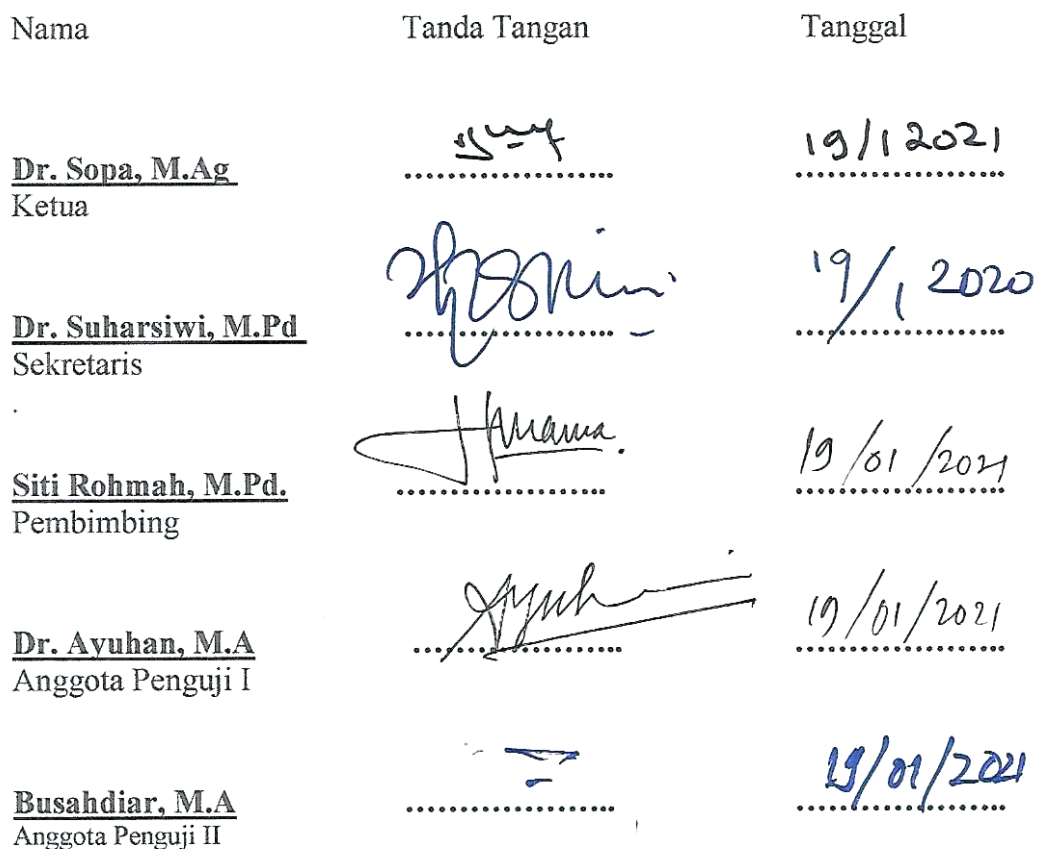 Nama Tanda Tangan Tanggal
19/1 2021
Dr. Sopa, M.Ag ....................
Ketua
19/1 2020
Dr. Suharsiwi, M.Pd ....................
Sekretaris
19/01/2021
Siti Rohmah, M.Pd. ....................
Pembimbing
Ayuh
19/01/2021
Dr. Ayuhan, M.A ....................
Anggota Penguji I
19/01/2021
Busahdiar, M.A ....................
Anggota Penguji II